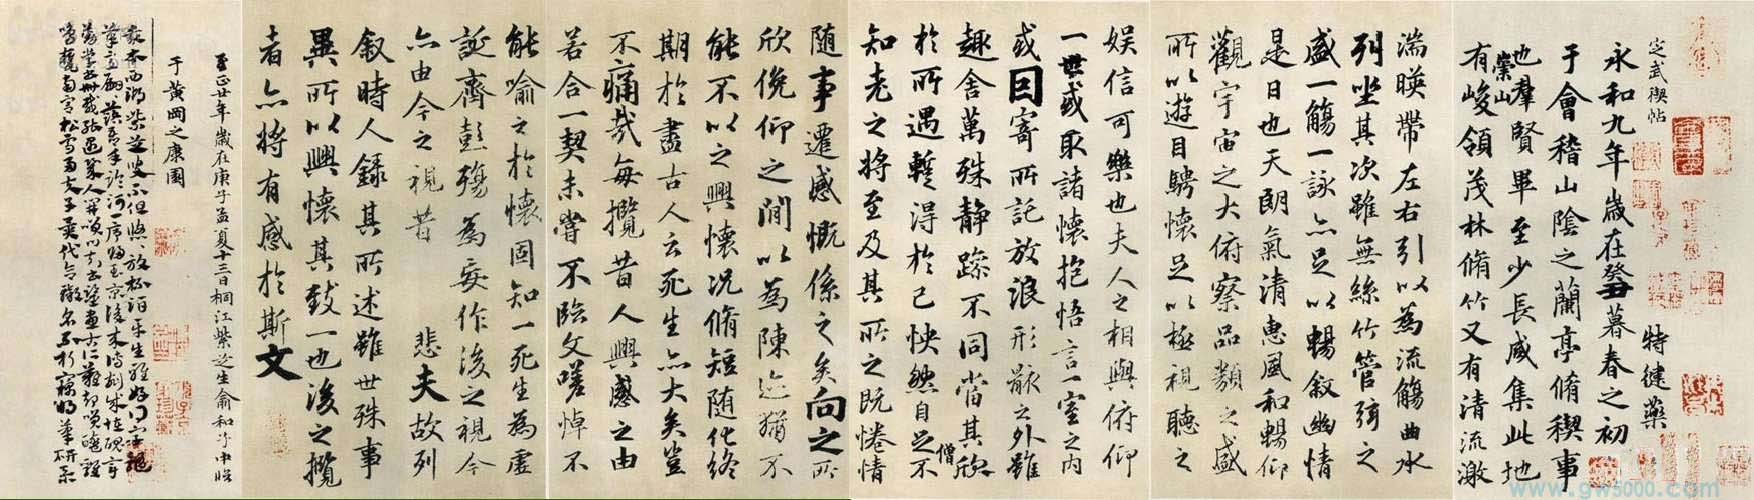 定武禊帖
特健藥
永和九年歲在癸丑暮春之初
于會稽山陰之蘭亭脩稧事
也羣賢畢至少長咸集此地
有崇山峻領茂林脩竹又有清流激
湍暎帶左右引以為流觴曲水
列坐其次雖無絲竹管弦之
盛一觴一詠亦足以暢敘幽情
是日也天朗氣清惠風和暢仰
觀宇宙之大俯察品類之盛
所以遊目騁懷足以極視聽之
娛信可樂也夫人之相與俯仰
一世或取諸懷抱悟言一室之內
或因寄所託放浪形骸之外雖
趣舍萬殊静躁不同當其欣
僧
於所遇暫得於己怏然自足不
知老之將至及其所之既惓情
隨事遷感慨係之矣向之所
欣俛仰之閒以為陳迹猶不
能不以之興懷况脩短隨化終
期於盡古人云死生亦大矣豈
不痛哉每攬昔人興感之由
若合一契未嘗不臨文嗟悼不
能喻之於懷固知一死生為虛
誕齊彭殤為妄作後之視今
亦由今之視昔 悲夫故列
叙時人錄其所述雖世殊事
異所以興懷其致一也後之攬
者亦將有感於斯文
至正廿年歲在庚子孟夏十三日桐江紫芝生俞和子中臨
于黃岡之康園
www.gw5000.com